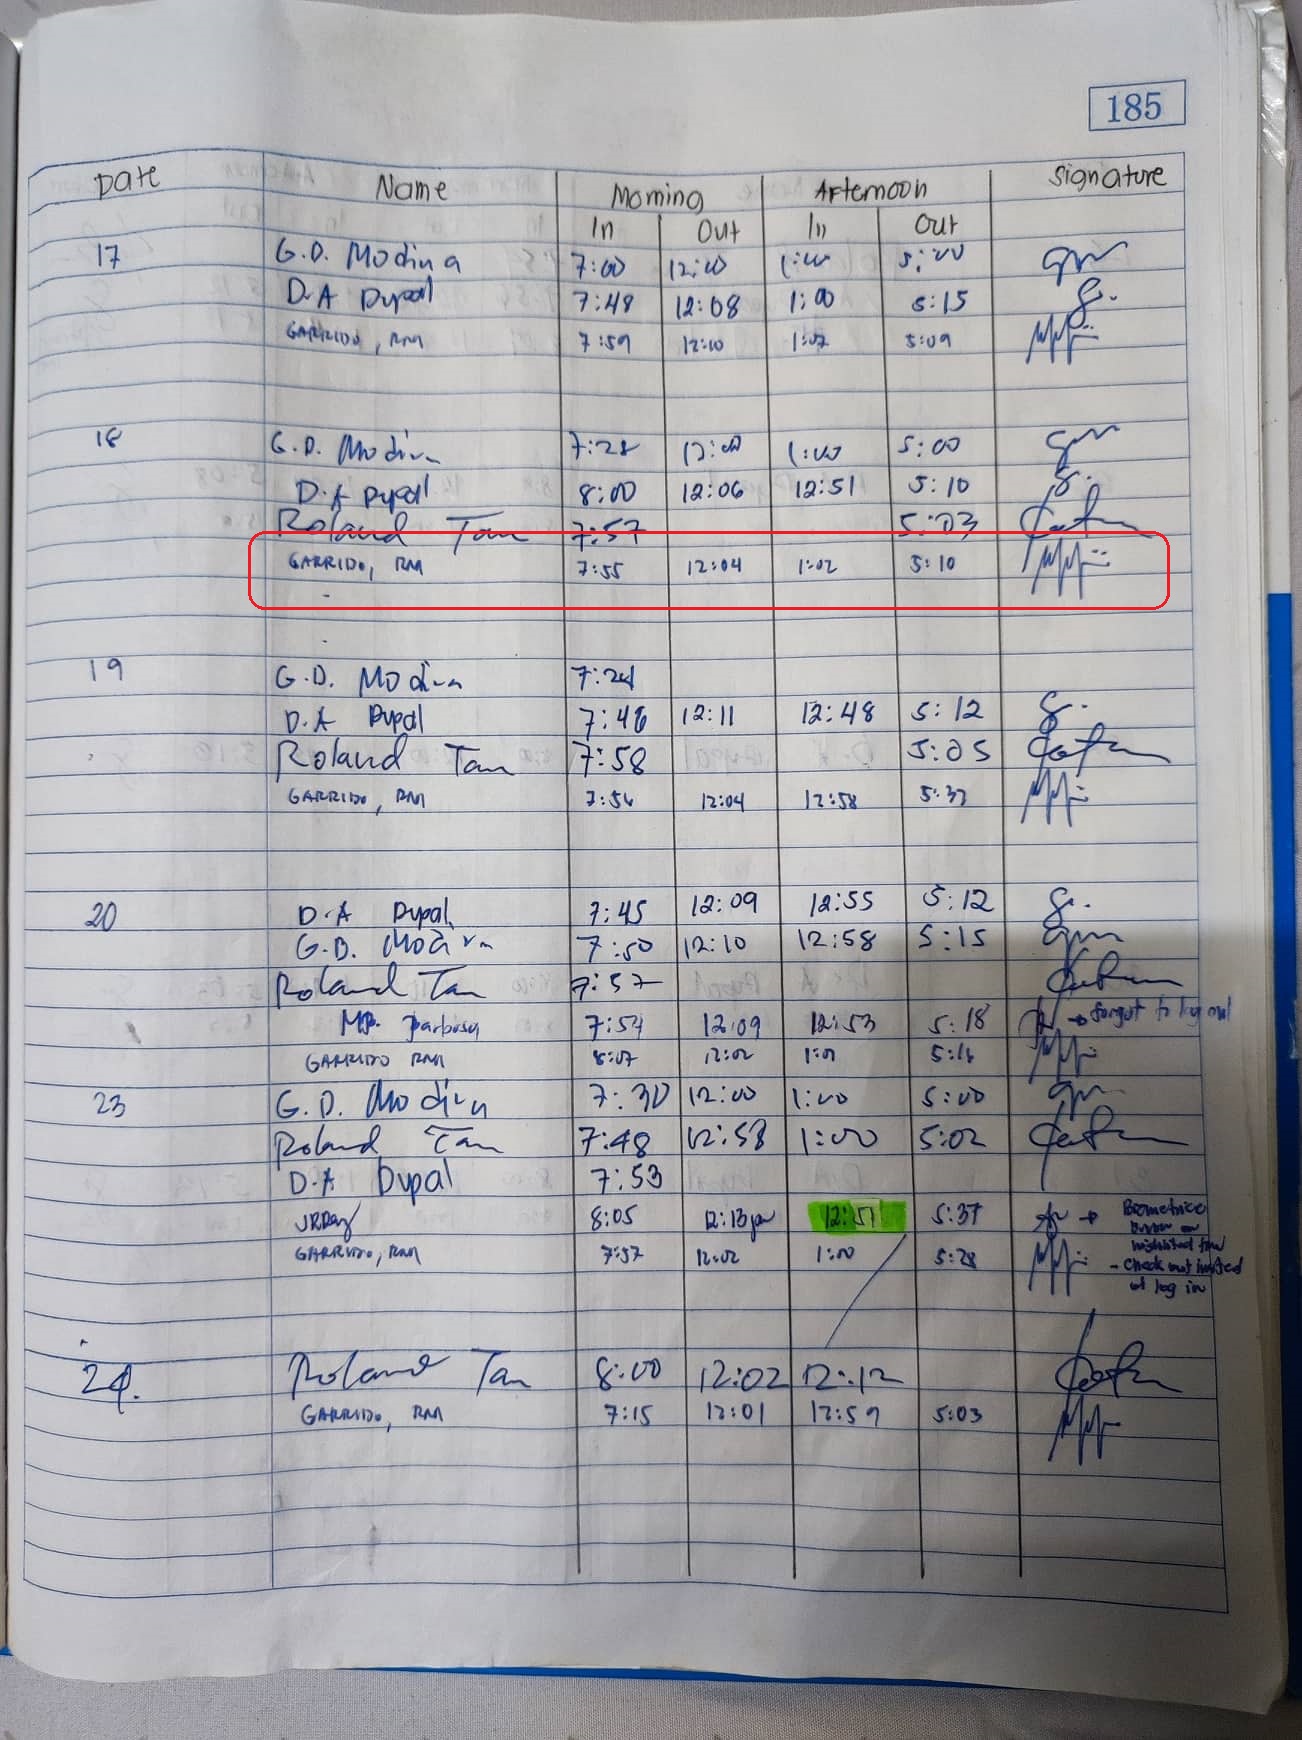 185
Date Name Morning Afternoon Signature
In Out In Out
17 G.D. Modina 7:00 12:00 1:00 5:00
D.A Dupal 7:48 12:08 1:00 5:15
GARRIDO, RM 7:59 12:10 1:07 5:09
18 G.D. Modina 7:28 12:00 1:00 5:00
D.A Dupal 8:00 12:06 12:51 5:10
Roland Tan 7:57 5:03
GARRIDO, RM 7:55 12:04 1:02 5:10
19 G.D. Modina 7:24
D.A Dupal 7:46 12:11 12:48 5:12
Roland Tan 7:58 5:05
GARRIDO, RM 7:56 12:04 12:58 5:37
20 D.A Dupal 7:45 12:09 12:55 5:12
G.D. Modina 7:50 12:10 12:58 5:15
Roland Tan 7:57
MP. Barbosa 7:54 12:09 12:53 5:18 → forgot to log out
GARRIDO RM 8:07 12:02 1:01 5:16
23 G.D. Modina 7:30 12:00 1:00 5:00
Roland Tan 7:48 12:58 1:00 5:02
D.A Dupal 7:53
8:05 12:13pm 12:51 5:37 → Biometrics
GARRIDO, RM 7:57 12:02 1:00 5:28
- Check out instead
of log in
24. Roland Tan 8:00 12:02 12:12
GARRIDO, RM 7:15 12:01 12:59 5:03